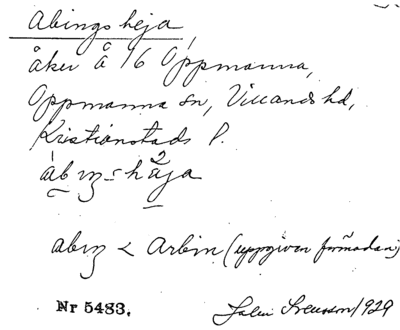 Abingsheja,
åker å 16 Oppmanna,
Oppmanna sn, Villands hd,
Kristianstads l.
ábiŋs-hä²ja
abiŋ < Arbin (uppgiven förmodan)
Nr 5483. Svensson 1929